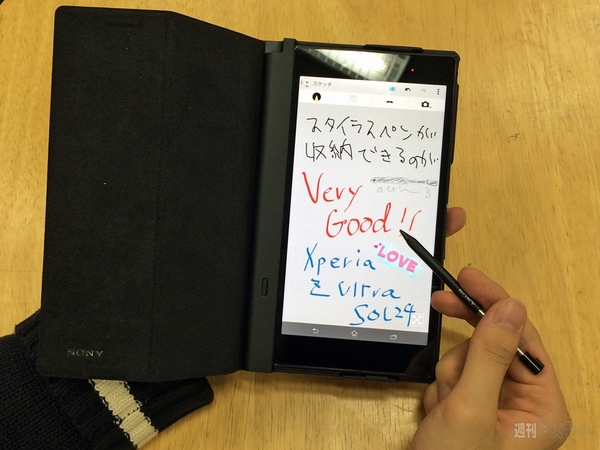 スケッチ
スタイラスペンが
収納できるのが
Very
Good!!
Xperia
LOVE
Z Ultra
SOL24
SONY
SONY
週刊